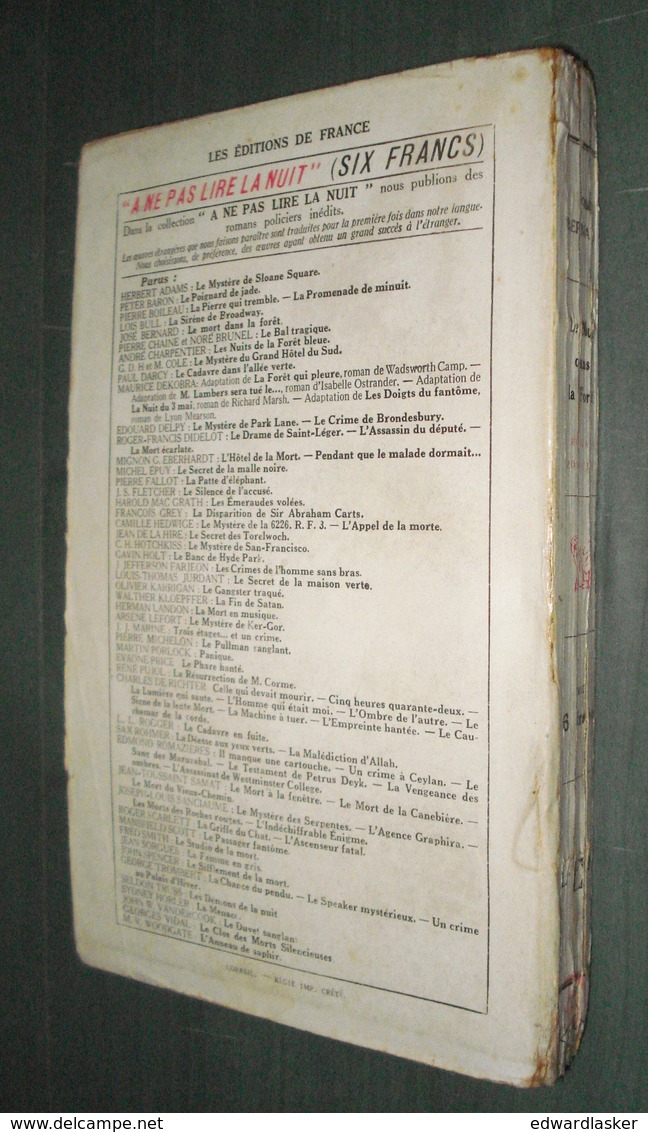 LES ÉDITIONS DE FRANCE
"A NE PAS LIRE LA NUIT" (SIX FRANCS)
Dans la collection " A NE PAS LIRE LA NUIT " nous publions des
romans policiers inédits.
Les œuvres étrangères que nous faisons paraître sont traduites pour la première fois dans notre langue.
Nous choisissons, de préférence, des œuvres ayant obtenu un grand succès à l'étranger.
Parus :
HERBERT ADAMS : Le Mystère de Sloane Square.
PETER BARON : Le Poignard de jade.
PIERRE BOILEAU : La Pierre qui tremble. — La Promenade de minuit.
LOIS BULL : La Sirène de Broadway.
JOSÉ BERNARD : Le mort dans la forêt.
PIERRE CHAINE et NORÉ BRUNEL : Le Bal tragique.
ANDRÉ CHARPENTIER : Les Nuits de la Forêt bleue.
G. D. H et M. COLE : Le Mystère du Grand Hôtel du Sud.
PAUL DARCY : Le Cadavre dans l'allée verte.
MAURICE DEKOBRA : Adaptation de La Forêt qui pleure, roman de Wadsworth Camp. —
Adaptation de M. Lambers sera tué le..., roman d'Isabelle Ostrander. — Adaptation de
La Nuit du 3 mai, roman de Richard Marsh. — Adaptation de Les Doigts du fantôme,
roman de Lyon Mearson.
EDOUARD DELPY : Le Mystère de Park Lane. — Le Crime de Brondesbury.
ROGER-FRANCIS DIDELOT : Le Drame de Saint-Léger. — L'Assassin du député. —
La Mort écarlate.
MIGNON G. EBERHARDT : L'Hôtel de la Mort. — Pendant que le malade dormait...
MICHEL ÉPUY : Le Secret de la malle noire.
PIERRE FALLOT : La Patte d'éléphant.
J. S. FLETCHER : Le Silence de l'accusé.
HAROLD MAC GRATH : Les Émeraudes volées.
FRANÇOIS GREY : La Disparition de Sir Abraham Carts.
CAMILLE HEDWIGE : Le Mystère de la 6226. R. F. 3. — L'Appel de la morte.
JEAN DE LA HIRE : Le Secret des Torelwoch.
C. H. HOTCHKISS : Le Mystère de San-Francisco.
GAVIN HOLT : Le Banc de Hyde Park.
J. JEFFERSON FARJEON : Les Crimes de l'homme sans bras.
LOUIS-THOMAS JURDANT : Le Secret de la maison verte.
OLIVIER KARRIGAN : Le Gangster traqué.
WALTHER KLOEPFFER : La Fin de Satan.
HERMAN LANDON : La Mort en musique.
ARSÈNE LEFORT : Le Mystère de Ker-Gor.
J. J. MARINE : Trois étages... et un crime.
PIERRE MICHELON : Le Pullman sanglant.
MARTIN PORLOCK : Panique.
EVADNE PRICE : Le Phare hanté.
RENÉ PUJOL : La Résurrection de M. Corme.
CHARLES DE RICHTER : Celle qui devait mourir. — Cinq heures quarante-deux. —
La Lumière qui saute. — L'Homme qui était moi. — L'Ombre de l'autre. — Le
Signe de la lente Mort. — La Machine à tuer. — L'Empreinte hantée. — Le Cau-
chemar de la corde.
L. L. ROGGER : Le Cadavre en fuite.
SAX ROHMER : La Déesse aux yeux verts. — La Malédiction d'Allah.
EDMOND ROMAZIÈRES : Il manque une cartouche. — Un crime à Ceylan. — Le
Sang des — Le Testament de Petrus Deyk. — La Vengeance des
ombres. — L'Assassinat de Westminster College.
JEAN-TOUSSAINT SAMAT : Le Mort à la fenêtre. — Le Mort de la Canebière. —
Le Mort du Vieux-Chemin.
JOSEPH-LOUIS SANCIAUME : Le Mystère des Serpentes. — L'Agence Graphira. —
Les Morts des Roches rouges. — L'Indéchiffrable Énigme.
ROGER SCARLETT : La Griffe du Chat. — L'Ascenseur fatal.
MANSFIELD SCOTT : Le Passager fantôme.
FRED SMITH : Le Studio de la mort.
JEAN SORGUES : La Femme en gris.
JOHN SPENCER : Le Sifflement de la mort.
GEORGE TROMMERT : La Chance du pendu. — Le Speaker mystérieux. — Un crime
au Palais d'Hiver.
SELDON TRUSS : Les Démons de la nuit
SYDNEY HORLER : La Menace.
JOHN W. VANDERCOOK : Le Duvet sanglant
GEORGES VIDAL : Le Clos des Morts Silencieuses
M. V. WOODGATE : L'Anneau de saphir.
CORBEIL. — RÉGIE IMP. CRÉTÉ.
6
delcampe.net
edwardlasker